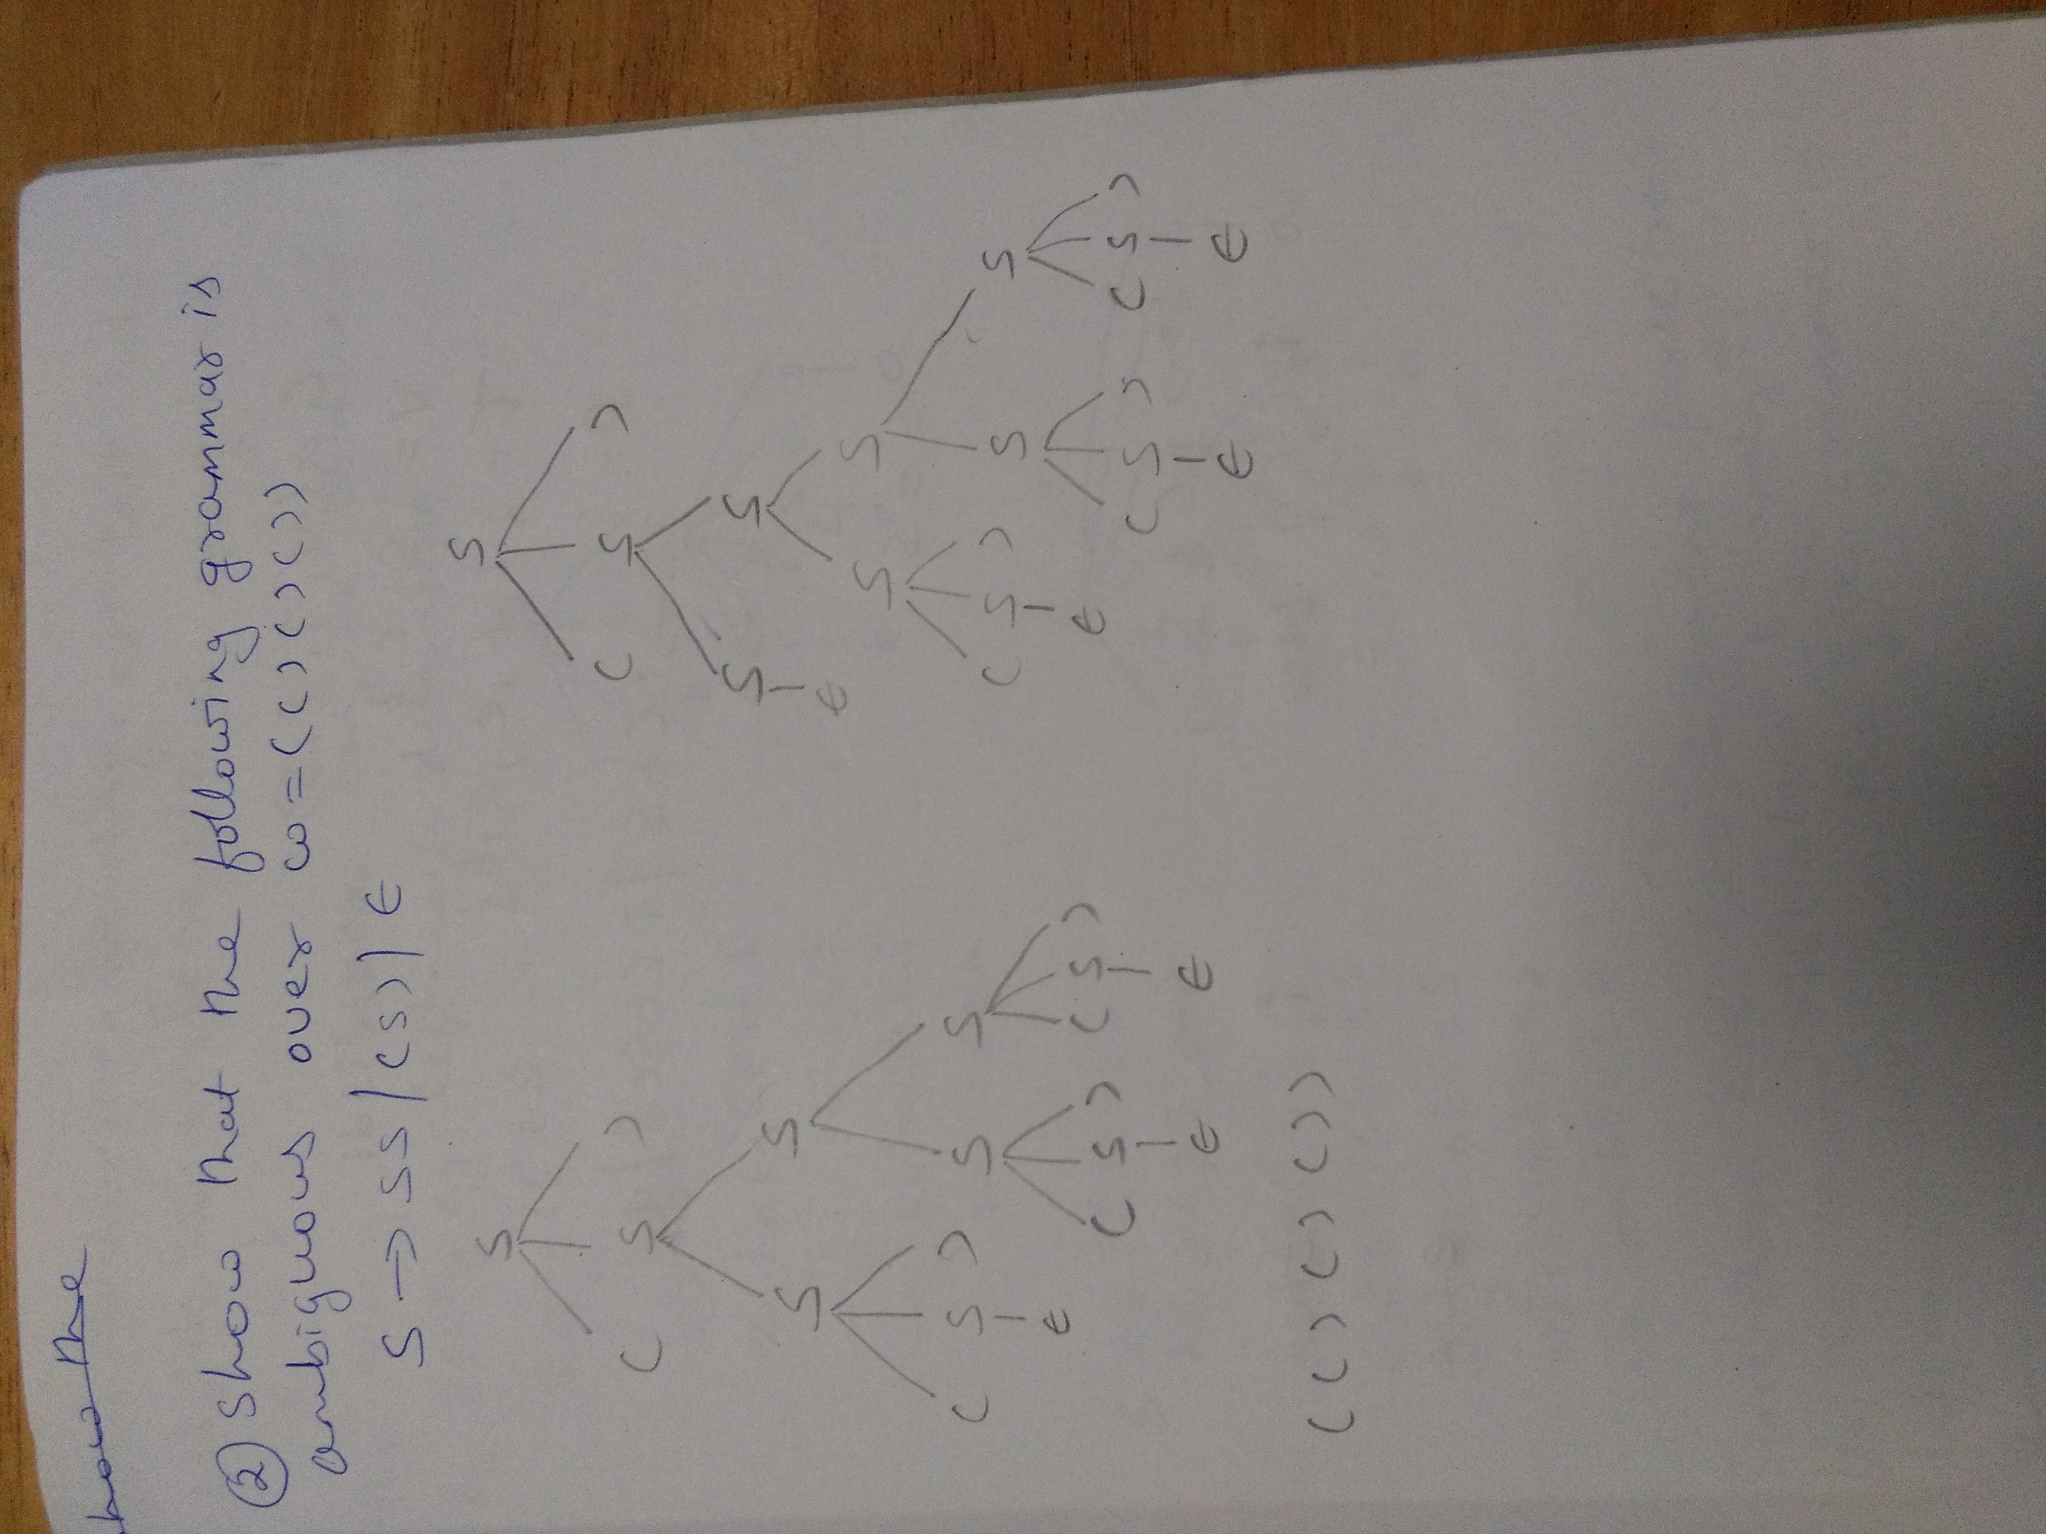 show the
② show that the following grammar is
ambiguous over w = ( ( ) ( ) ( ) )
S → SS | (S) | ∈
S S
( S ) ( S )
S S S S
( S ) S S ∈ S S
∈ ( S ) ( S ) ( S ) S S
∈ ∈ ∈ ( S ) ( S )
∈ ∈
( ( ) ( ) ( ) )